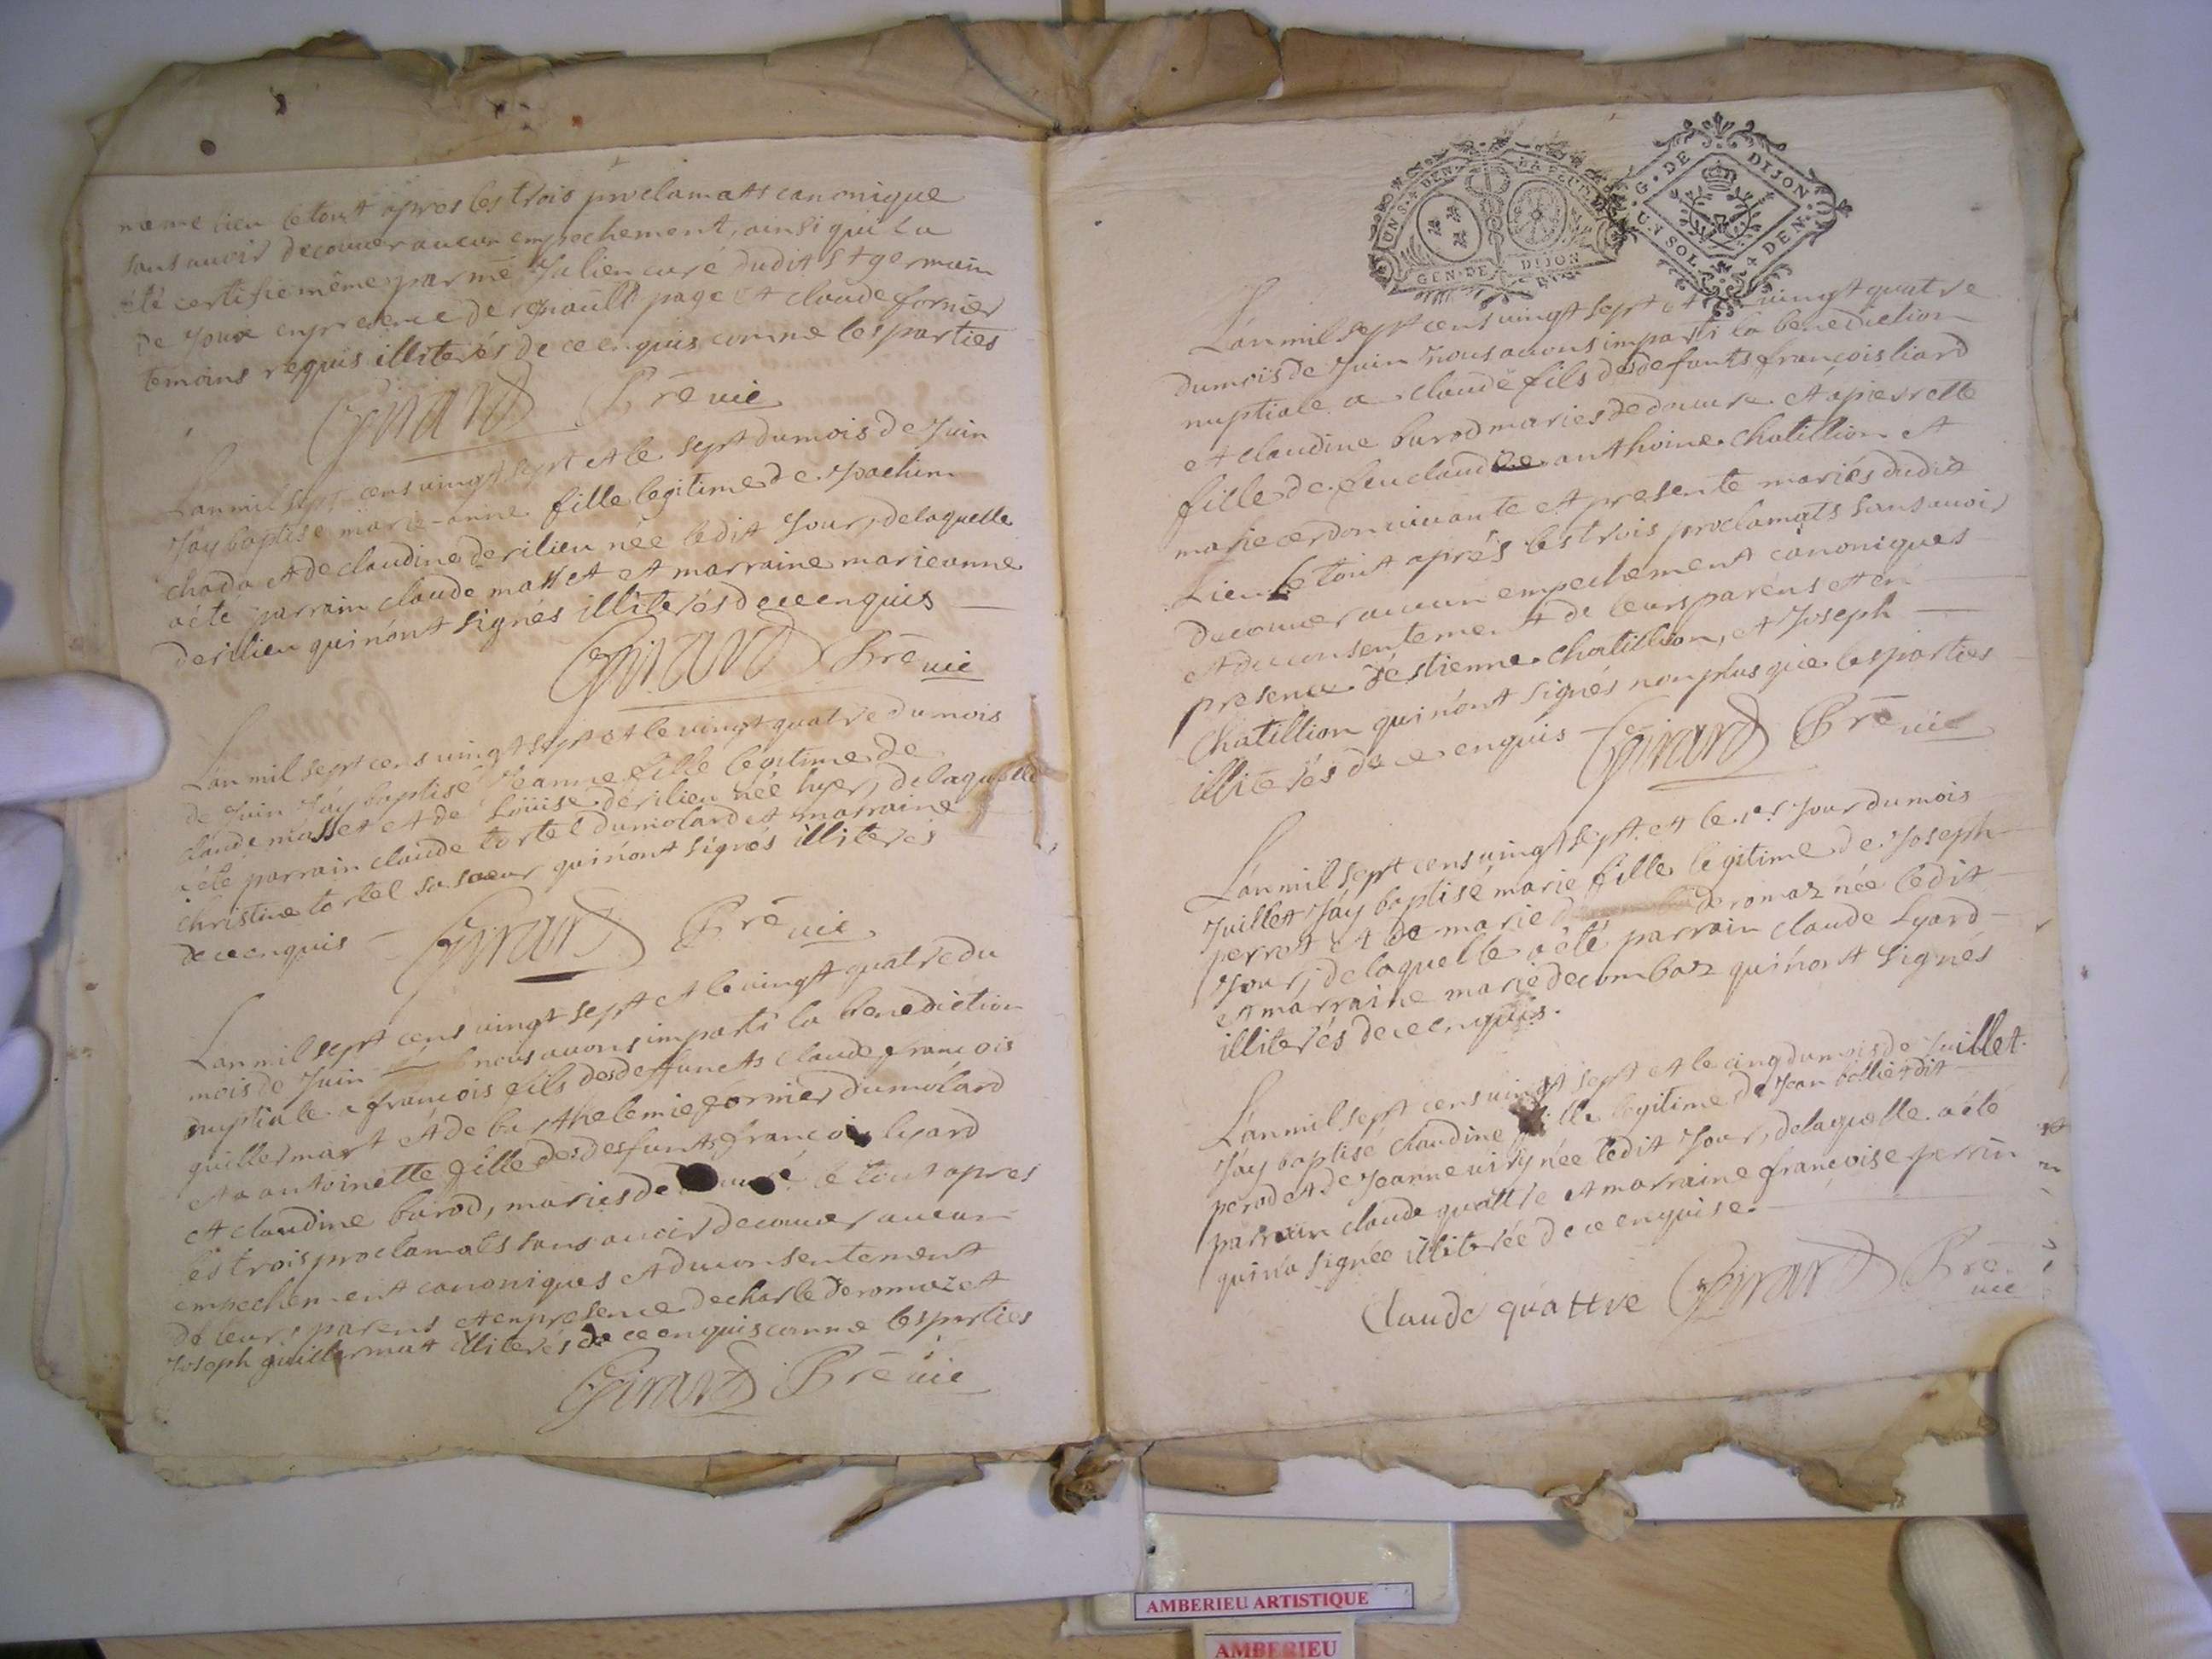 meme lieu le tout apres les trois proclamatt canonique
sans avoir decouver aucun empechement, ainsi qui la
été certifie même par mē Julien curé dudit St germain
de Joux en presence de renault page et claude fornier
temoins requis illiterés de ce enquis comme les parties
Girard Prē vic
L'an mil sept cens vingt sept et le sept du mois de Juin
J'ay baptise marie-anne fille legitime de Joachim
chada et de claudine derilieu née ledit Jour, de laquelle
a été parrain claude masset et marraine marieanne
derilieu qui n'ont signés illiterés de ce enquis
Girard Prē vic
L'an mil sept cens vingt sept et le vingt quatre du mois
de Juin J'ay baptisé Jeanne fille legitime de
claude masset et de Loüise derilieu née hyer, de laquelle
a été parrain claude tortel du molard et marraine
christine tortel sa soeur qui n'ont signés illiterés
de ce enquis Girard Prē vic
L'an mil sept cens vingt sept et le vingt quatre du
mois de Juin nous avons imparti la benediction
nuptiale a francois fils des deffuncts claude francois
guillermart et de barthelemie fornier du molard
et a antoinette fille des desfunts francois lyard
et claudine barod, maries de le tout apres
les trois proclamats sans avoir decouver aucun
empechement canoniques et du consentement
de leurs parens et en presence de charle deromaz et
Joseph guillermat illiterés de ce enquis comme les parties
Girard Prē vic
UN S. 4 DEN. LA FEUIL
GEN. DE DIJON
G. DE DIJON
UN SOL 4 DEN.
L'an mil sept cens vingt sept et vingt quatre
du mois de Juin nous avons imparti la benediction
nuptiale a claude fils des defunts francois liard
et claudine barod maries de douvre et a pierrette
fille de feu claudine anthoine chatillion et
marie cerdon vivante et presente mariés dudit
Lieu le tout aprés les trois proclamats sans avoir
decouver aucun empechement canoniques
et du consentement de leurs parens et en
presence d'estienne chatillion, et Joseph
chatillion qui n'ont signés non plus que les parties
illiterés de ce enquis Girard Prē vic
L'an mil sept cens vingt sept et le 1er Jour du mois
Juillet J'ay baptisé marie fille legitime de Joseph
perrot et de marie deromaz née ledit
Jour, de laquelle a été parrain claude Lyard
et marraine marie decombaz qui n'ont signés
illiterés de ce enquis.
L'an mil sept cens vingt sept et le cinq du mois de Juillet
J'ay baptisé claudine fille legitime de Jean bollier dit
perod et de Jeanne viry née ledit Jour, de laquelle a été
parrain claude quattre et marraine françoise perrin
qui n'a signée illiterée de ce enquise.
Claude quattre Girard Prē
vic
AMBERIEU ARTISTIQUE
AMBERIEU